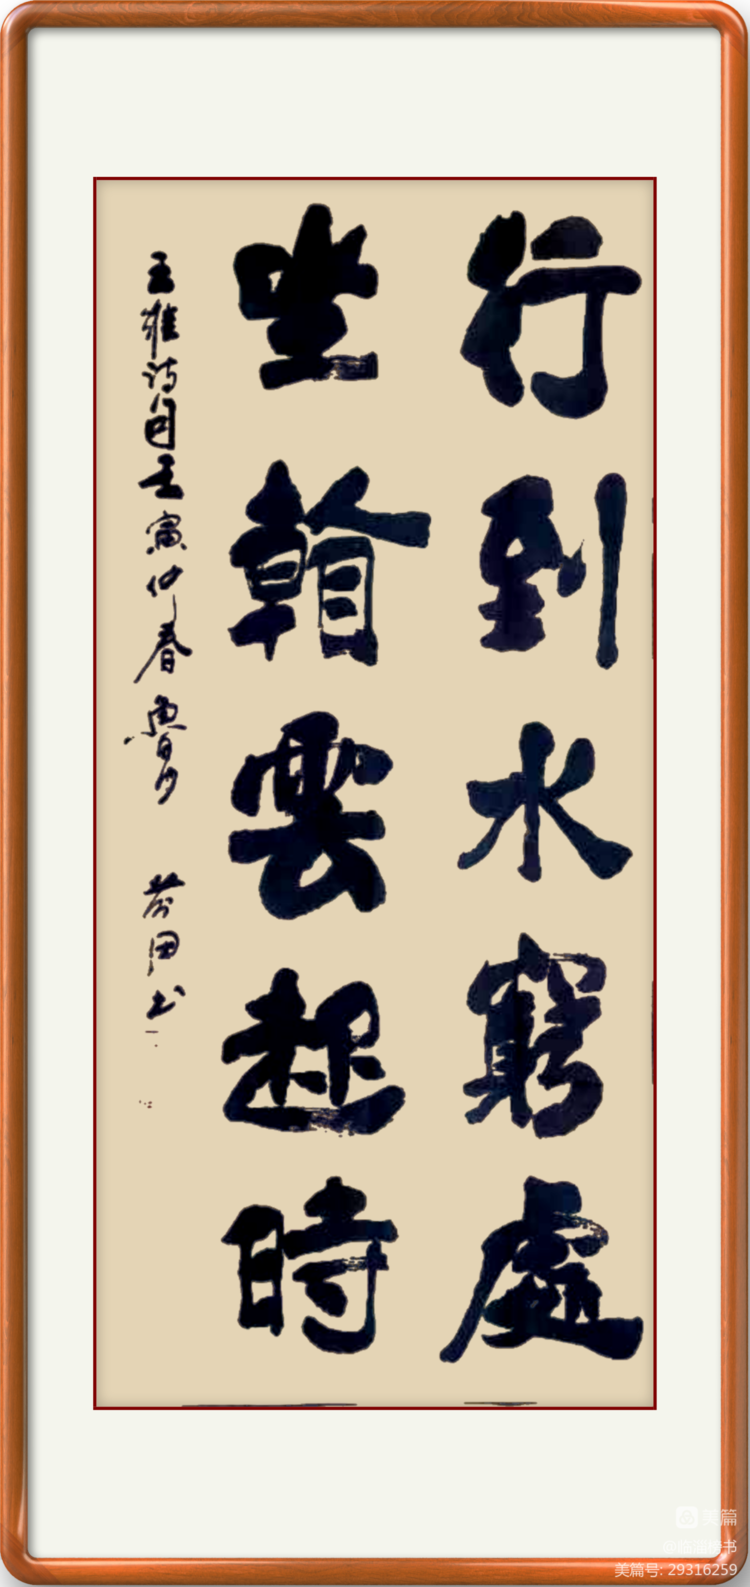 行到水窮處
坐看雲起時
王維诗句壬寅仲春魯
书
美篇
美篇号: 29316259